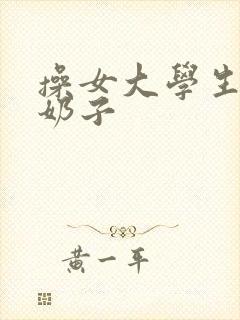 操女大學生
奶子
黄一平